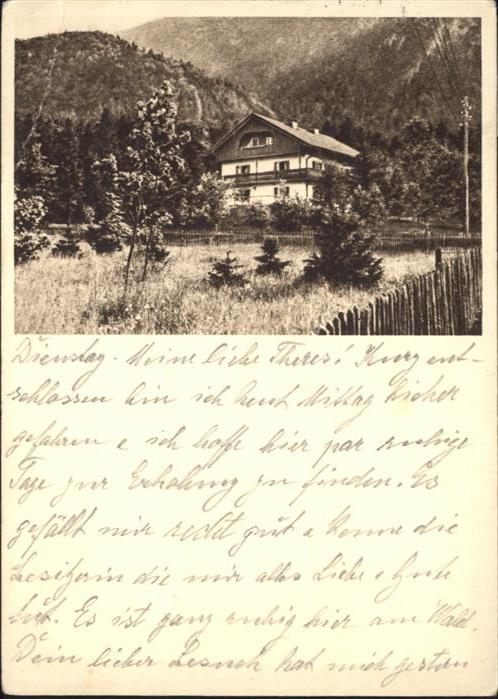 Dienstag. Meine liebe Theres! Kurz ent-
schlossen bin ich heut Mittag hieher
gefahren e ich hoffe hier par ruhige
Tage zur Erholung zu finden. Es
gefällt mir recht gut e kenne die
Besitzerin die mir alles Liebe e Gute
tut. Es ist ganz ruhig hier am Wald.
Dein lieber Besuch hat mich gestern